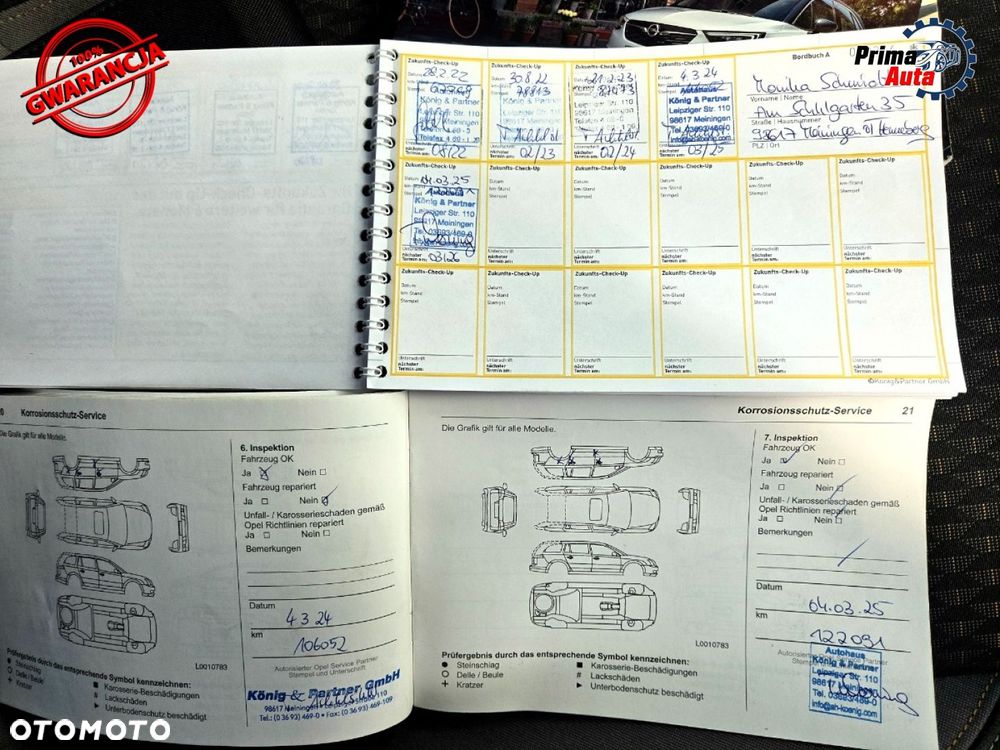 100%
GWARANCJA
Prima
Auta
Bordbuch A
Zukunfts-Check-Up
Datum 28.2.22
König & Partner
Leipziger Str. 110
98617 Meiningen
nächster
Termin am: 08/22
Zukunfts-Check-Up
30.8.22
78813
König & Partner
Leipziger Str. 110
98617 Meiningen
nächster
Termin am: 02/23
Zukunfts-Check-Up
21.2.23
Leipziger Str. 110
98617 Meiningen
nächster
Termin am: 02/24
Zukunfts-Check-Up
4.3.24
Autohaus
König & Partner
Leipziger Str. 110
98617 Meiningen
Tel. 03693/469-0
nächster
Termin am: 03/25
Vorname | Name
Straße | Hausnummer
98617 Meiningen
PLZ | Ort
Zukunfts-Check-Up
Datum 04.03.25
König & Partner
Leipziger Str. 110
98617 Meiningen
Tel. 03693/469-0
nächster
Termin am: 03/26
Zukunfts-Check-Up
Datum
km-Stand
Stempel
Unterschrift
nächster
Termin am:
Zukunfts-Check-Up
Datum
km-Stand
Stempel
Unterschrift
nächster
Termin am:
Zukunfts-Check-Up
Datum
km-Stand
Stempel
Unterschrift
nächster
Termin am:
Zukunfts-Check-Up
Datum
km-Stand
Stempel
Unterschrift
nächster
Termin am:
Zukunfts-Check-Up
Datum
km-Stand
Stempel
Unterschrift
nächster
Termin am:
Zukunfts-Check-Up
Datum
km-Stand
Stempel
Unterschrift
nächster
Termin am:
Zukunfts-Check-Up
Datum
km-Stand
Stempel
Unterschrift
nächster
Termin am:
Zukunfts-Check-Up
Datum
km-Stand
Stempel
Unterschrift
nächster
Termin am:
Zukunfts-Check-Up
Datum
km-Stand
Stempel
Unterschrift
nächster
Termin am:
Zukunfts-Check-Up
Datum
km-Stand
Stempel
Unterschrift
nächster
Termin am:
©König&Partner GmbH
Korrosionsschutz-Service
Die Grafik gilt für alle Modelle.
6. Inspektion
Fahrzeug OK
Ja Nein
Fahrzeug repariert
Ja Nein
Unfall- / Karosserieschaden gemäß
Opel Richtlinien repariert
Ja Nein
Bemerkungen
Datum
4 3 24
km
106052
L0010783
Autorisierter Opel Service Partner
Stempel und Unterschrift
König & Partner GmbH
98617 Meiningen · Leipziger Str. 110
Tel.: (0 36 93) 469-0 • Fax: (0 36 93) 469-109
Prüfergebnis durch das entsprechende Symbol kennzeichnen:
Steinschlag
Delle / Beule
Kratzer
Karosserie-Beschädigungen
Lackschäden
Unterbodenschutz beschädigt
Korrosionsschutz-Service 21
Die Grafik gilt für alle Modelle.
7. Inspektion
Fahrzeug OK
Ja Nein
Fahrzeug repariert
Ja Nein
Unfall- / Karosserieschaden gemäß
Opel Richtlinien repariert
Ja Nein
Bemerkungen
Datum
04.03.25
km
122091
L0010783
Autorisierter Opel Service Partner
Autohaus
König & Partner
Leipziger Str. 110
98617 Meiningen
Tel. 03693/469-0
info@ah-koenig.com
Prüfergebnis durch das entsprechende Symbol kennzeichnen:
Steinschlag
Delle / Beule
+ Kratzer
Karosserie-Beschädigungen
# Lackschäden
Unterbodenschutz beschädigt
OTOMOTO